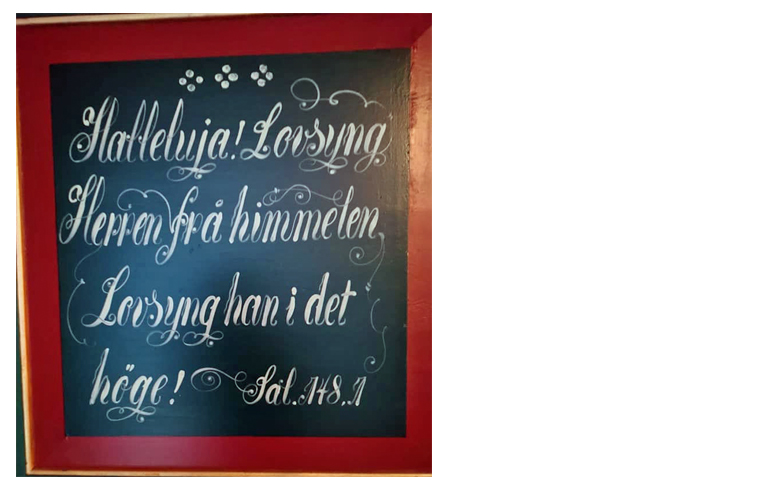 Halleluja! Lovsyng
Herren frå himmelen,
Lovsyng han i det
höge! Sal. 148,1